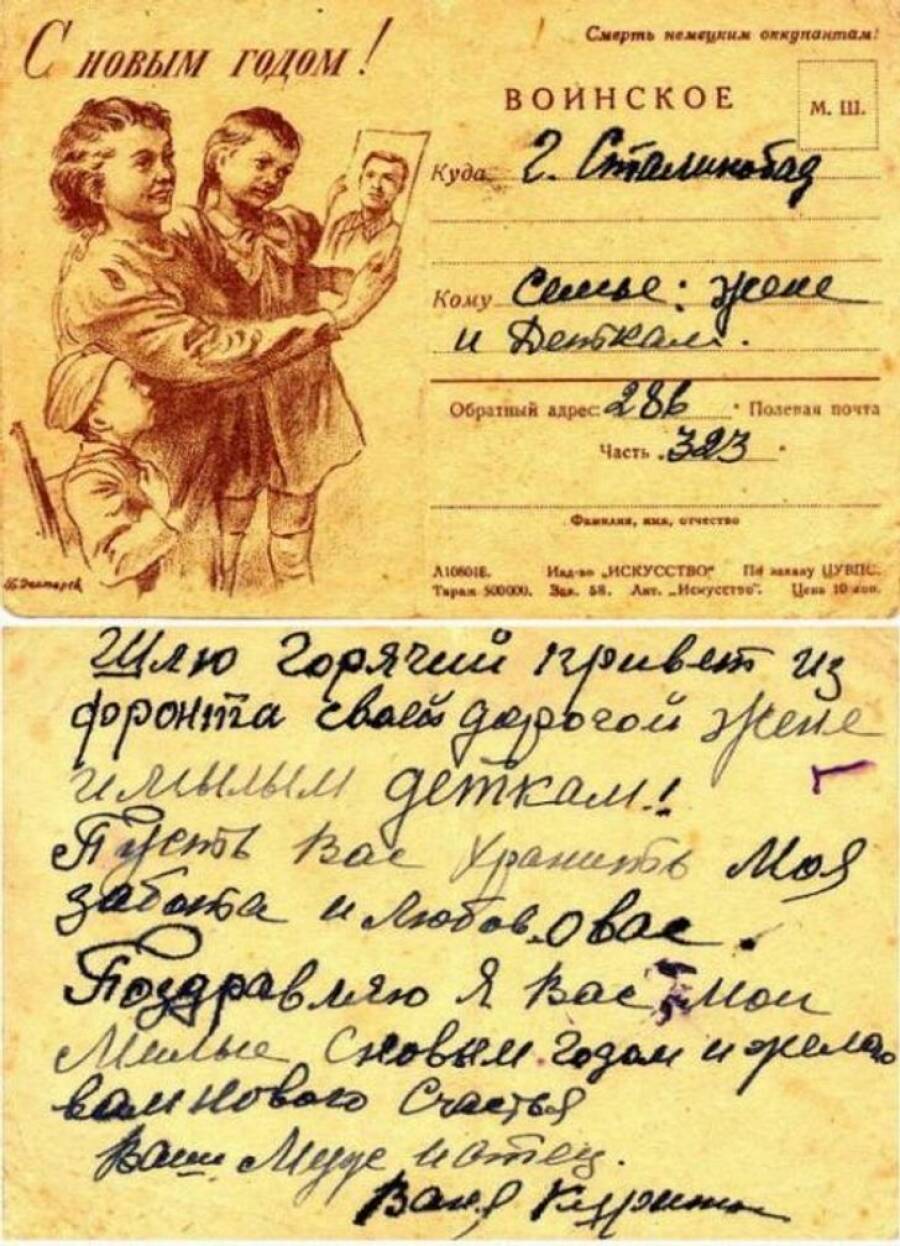 С новым годом!
Смерть немецким оккупантам!
ВОИНСКОЕ
М. Ш.
Куда г. Сталинобад
Кому Семье: жене
и Деткам.
Обратный адрес: 286 Полевая почта
Часть 323
Фамилия, имя, отчество
А10601Б. Изд-во „ИСКУССТВО“ По заказу ЦУВПС.
Тираж 500000. Зак. 58. Лит. „Искусство“. Цена 10 коп.
Шлю горячий привет из
фронта своей дорогой жене
и милым деткам!
Пусть Вас хранить Моя
забота и Любов о вас.
Поздравляю я Вас Мои
Милые С новым годом и желаю
вам нового Счастья
Ваш Муж и отец.
Ваня